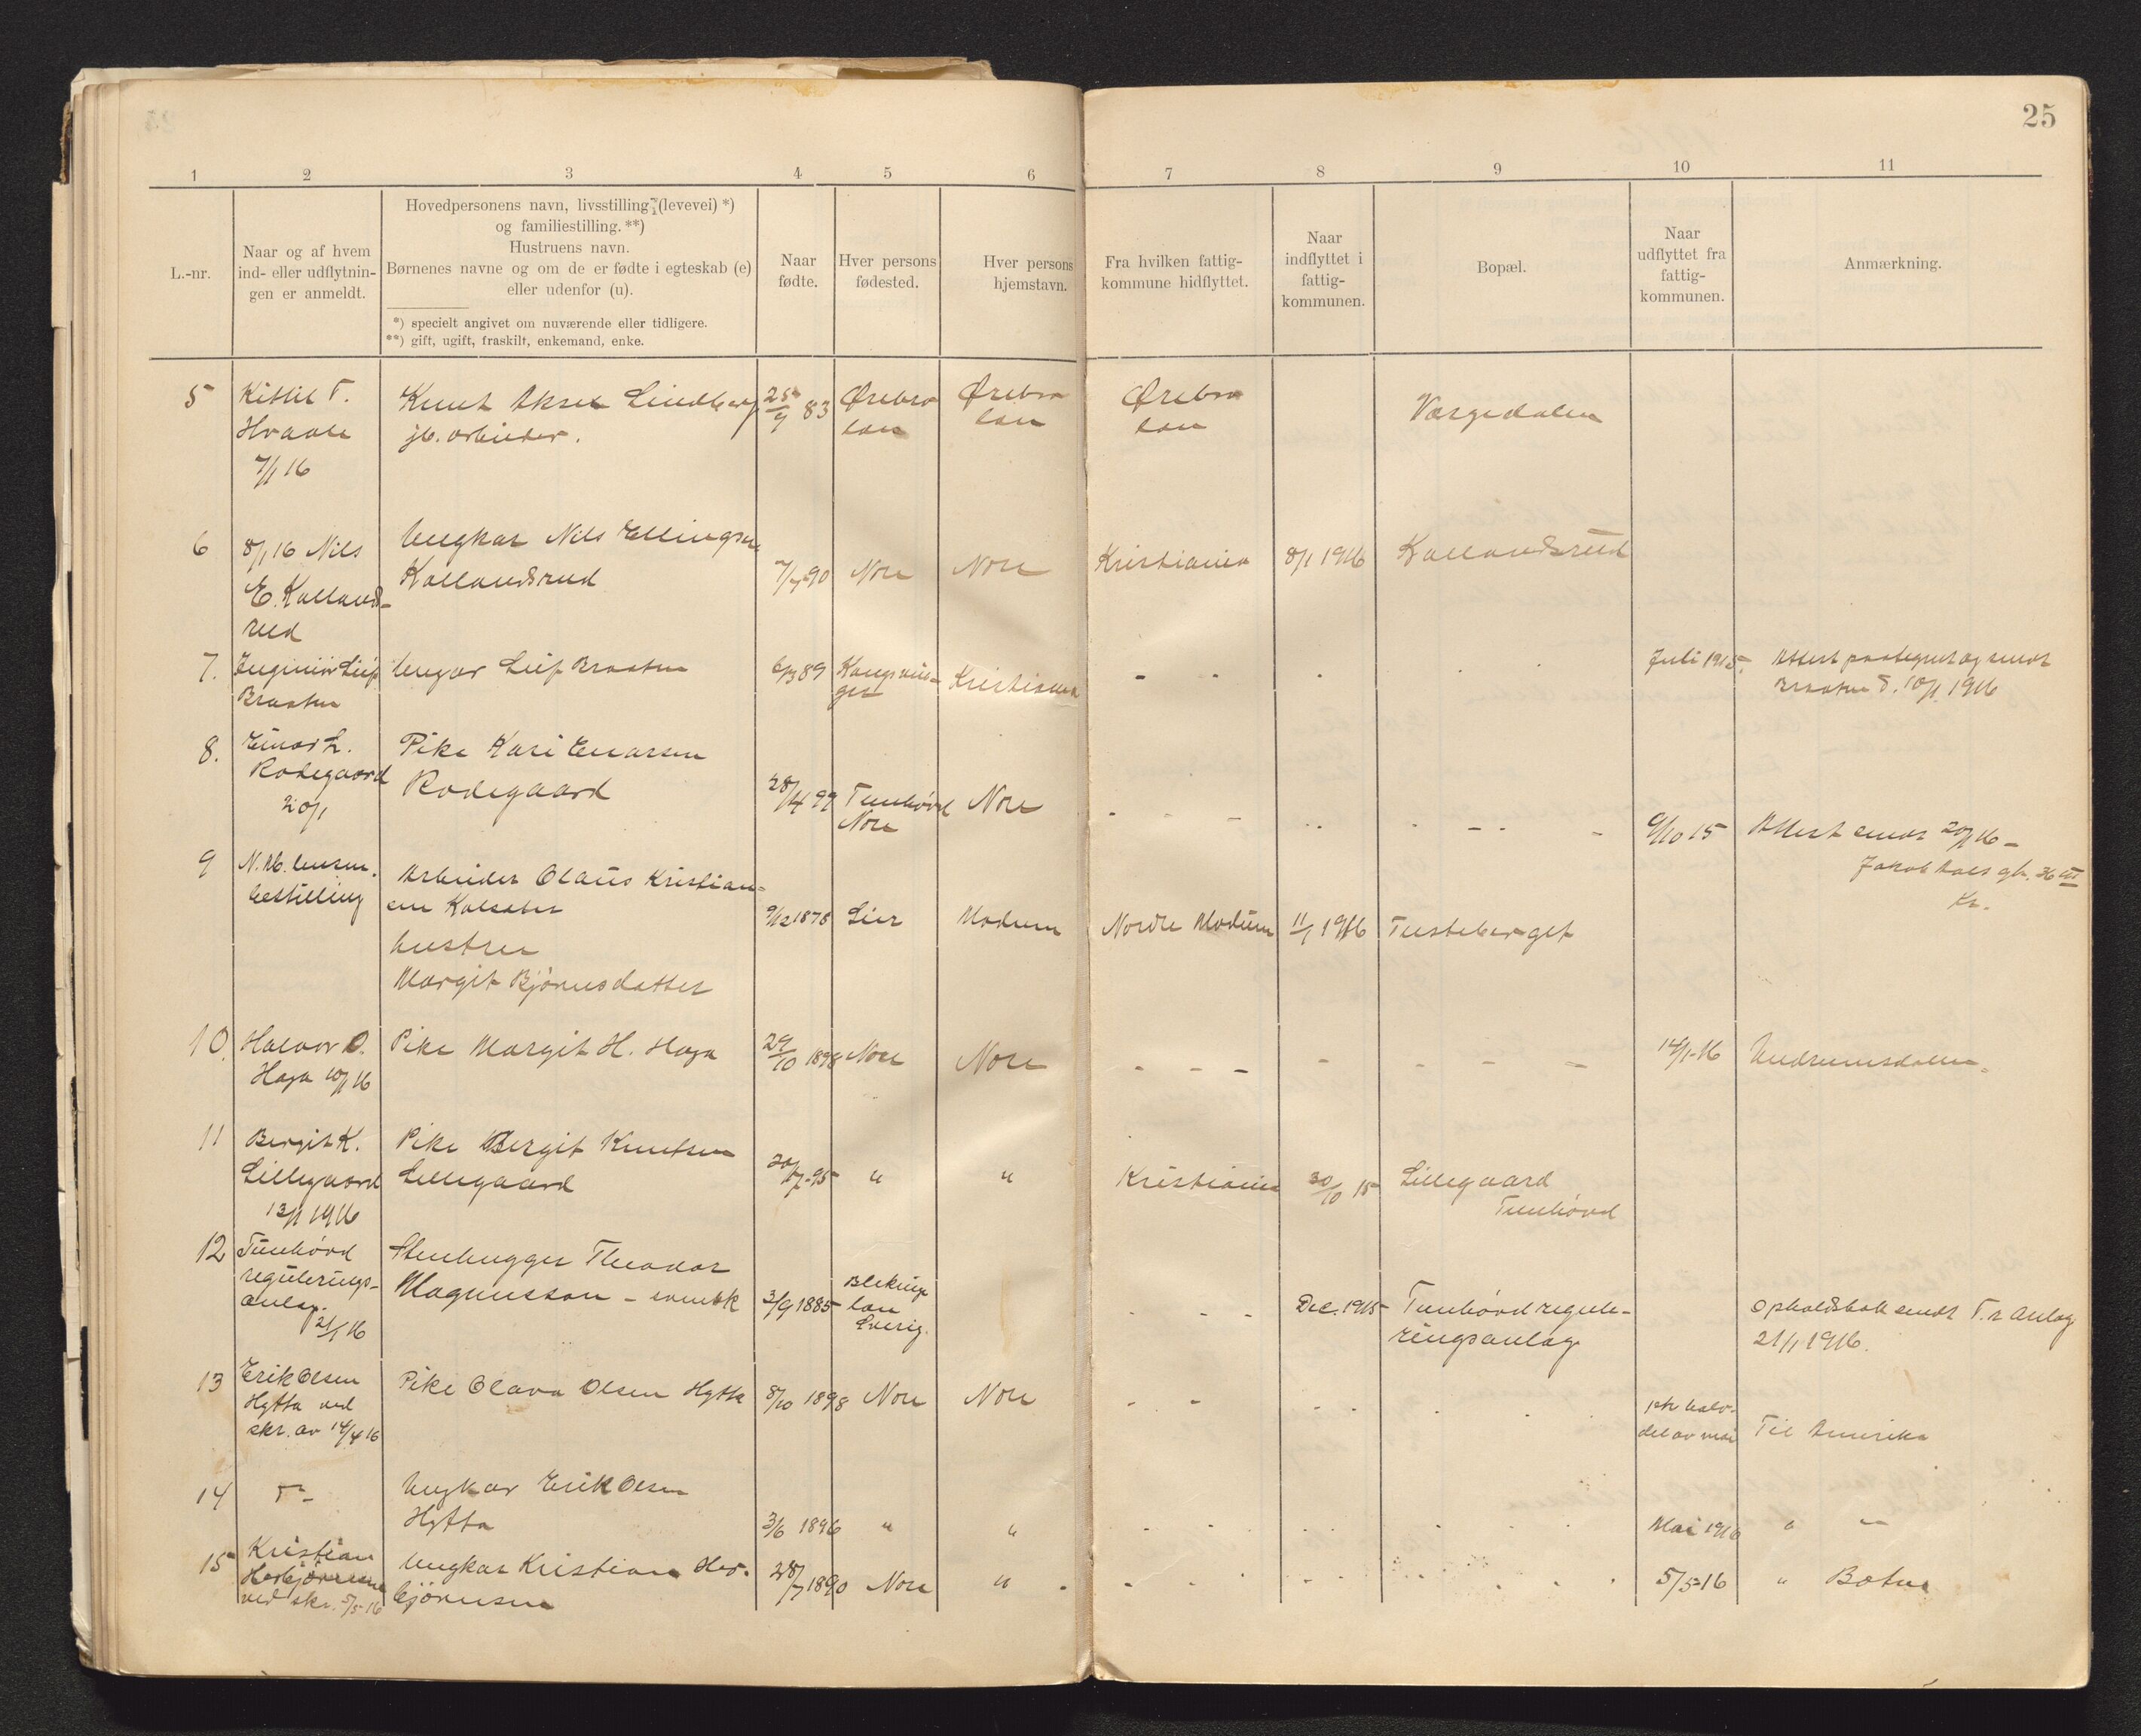 25
1 2 3 4 5 6 7 8 9 10 11
L.-nr.
Naar og af hvem
ind- eller udflytnin-
gen er anmeldt.
Hovedpersonens navn, livsstilling (levevei) *)
og familiestilling. **)
Hustruens navn.
Børnenes navne og om de er fødte i egteskab (e)
eller udenfor (u).
*) specielt angivet om nuværende eller tidligere.
**) gift, ugift, fraskilt, enkemand, enke.
Naar
fødte.
Hver persons
fødested.
Hver persons
hjemstavn.
Fra hvilken fattig-
kommune hidflyttet.
Naar
indflyttet i
fattig-
kommunen.
Bopæl.
Naar
udflyttet fra
fattig-
kommunen.
Anmærkning.
5
Kittil T.
Hvaale
7/1 16
Knut Aksel Lindberg
jb. arbeider.
25/9 83
Ørebro
län
Ørebro
län
Ørebro
län
Vargedalen
6
8/1 16 Nils
E. Kalland-
rud
Ungkar Nils Ellingsen
Kallandsrud
7/7-90
Nore
Nore
Kristiania
8/1 1916
Kallandsrud
7.
Ingeniör Leif
Braaten
Ungar Leif Braaten
6/3 89
Kongsvin-
ger
Kristiania
Juli 1915.
Attest paategnet og sendt
Braaten d. 10/1 1916
8.
Einar L.
Rodegaard
20/1
Pike Kari Enarsen
Rodegaard
28/4 99
Tunhövd
Nore
Nore
9/10 15
Attest sendt 20/1 16 –
Jakob Aals gt. 36 III
Kr.
9
bestilling
Arbeider Olaus Kristian-
sen Kalsater
hustru
Margit Bjørnsdatter
9/12 1878
Lier
Modum
Nordre Modum
11/1 1916
Tusteberget
10.
Halvor O.
Haga 10/1 16
Pike Margit H. Haga
29/10 1898
Nore
Nore
14/1-16
Undrumsdalen.
11
Bergit K.
Lillegaard
13/1 1916
Pike Bergit Knutsen
Lillegaard
20/7-95
"
"
Kristiania
30/10 15
Lillegaard
Tunhövd
12
Tunhövd
regulerings-
anlag.
21/1 16
Stenhugger Theodor
Magnusson – svensk
3/9 1885
Blekinge
län
Sverig.
Dec. 1915
Tunhövd regule-
ringsanlag
Opholdsbok sendt T. r anlag
21/1 1916.
13
Erik Olsen
Hytta ved
skr. av 14/4 16
Pike Olava Olsen Hytta
8/10 1898
Nore
Nore
1ste halv-
del av mai
Til Amerika
14
Ungkar Erik Olsen
Hytta
3/6 1896
"
"
Mai 1916
" –
15
Kristian
Herbjörnsen
ved skr. 5/5-16
Ungkar Kristian Her-
björnsen
28/7 1890
Nore
"
5/5-16
" Botne